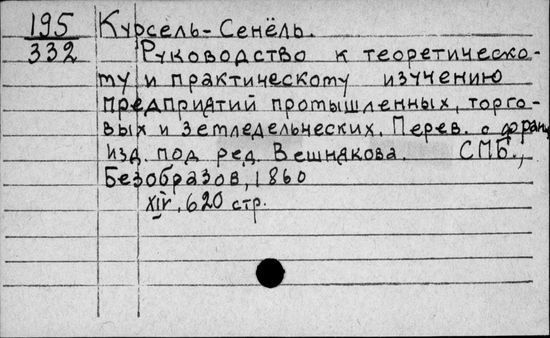 195 Курсель-Сенёль.
332 Руководство к теоретическо-
му и практическому изучению
предприятий промышленных, торго-
вых и земледельческих. Перев. с франц.
изд. под ред. Вешнякова. СПБ.,
Безобразов, 1860
XIV, 620 стр.